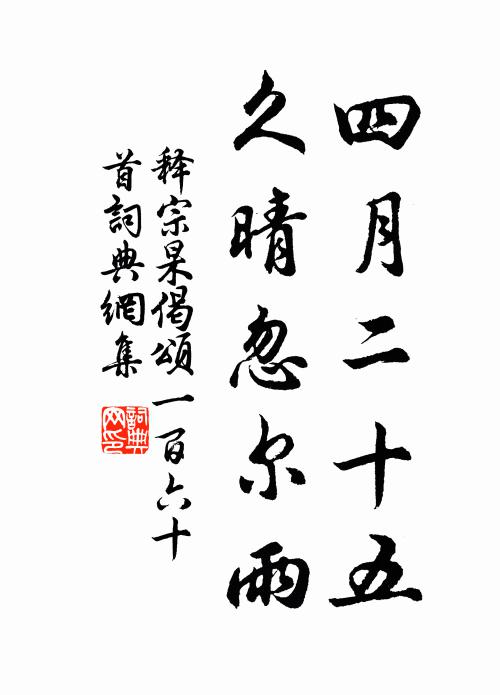 四月二十五
久晴忽尔雨
释宗杲偈頌一百六十
首詞典網集
詞典
网印